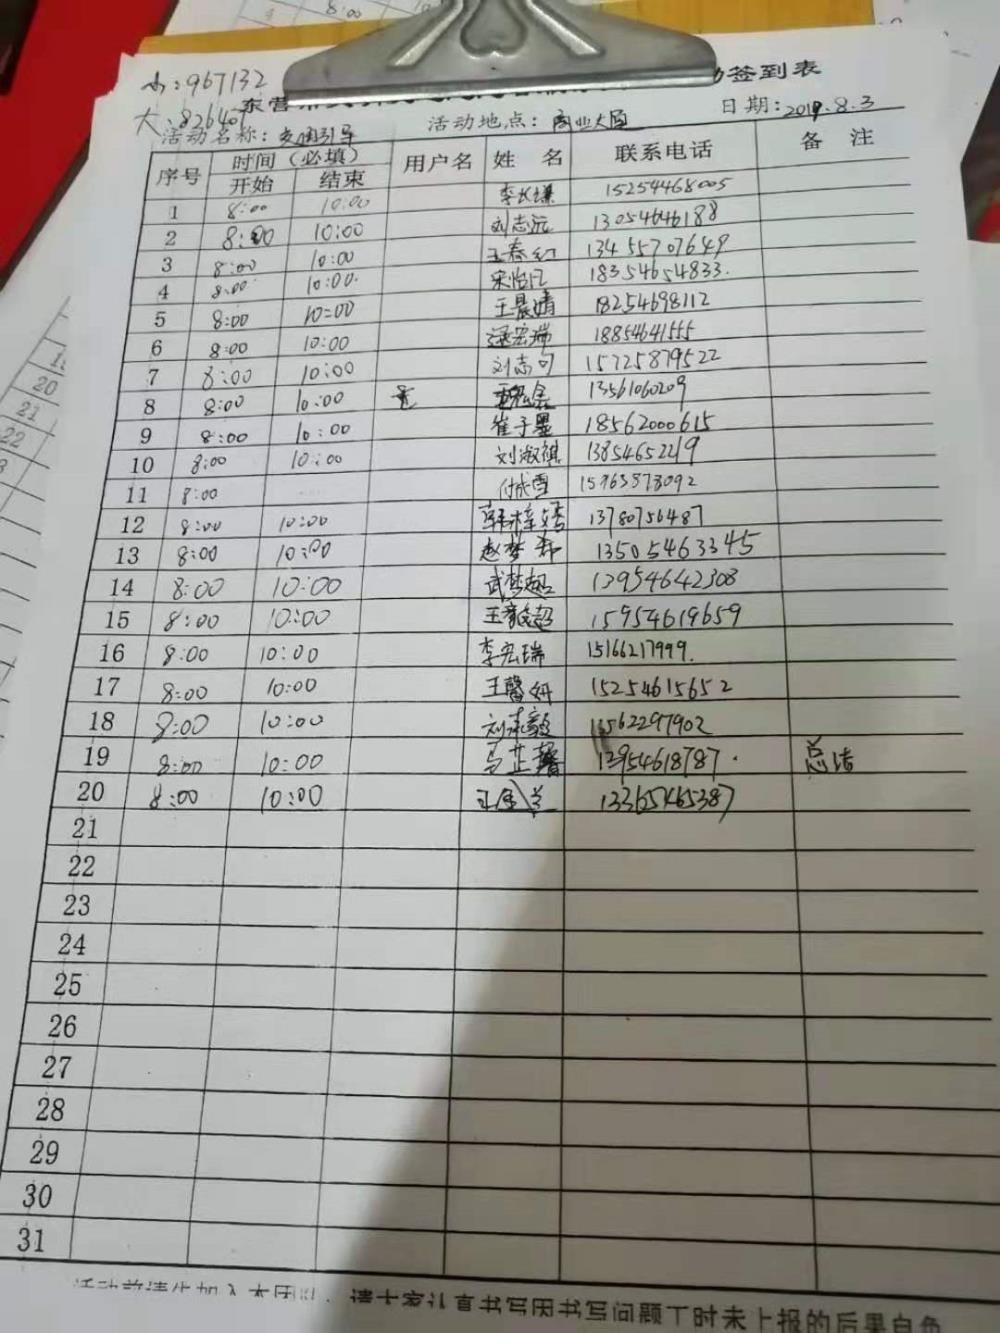 小:967132
大:826401
东营
签到表
活动名称:交通引导 活动地点:商业大厦 日期:2019.8.3
序号 时间(必填) 用户名 姓 名 联系电话 备 注
开始 结束
1 8:00 10:00 李长谦 15254468005
2 8:00 10:00 刘志远 13054646188
3 8:00 10:00 王春红 13455707649
4 8:00 10:00. 宋怡凡 18354654833.
5 8:00 10:00 王晨婧 18254698112
6 8:00 10:00 宏瑞 18854641555
7 8:00 10:00 刘志 15725879522
8 8:00 10:00 13561060209
9 8:00 10:00 崔子墨 18562000615
10 8:00 10:00 刘淑祺 13854652219
11 8:00 付成雪 15963873092
12 8:00 10:00 韩梓 13780756487
13 8:00 10:00 赵梦 13505463345
14 8:00 10:00 武梦超 13954642308
15 8:00 10:00 王超 15954619659
16 8:00 10:00 李宏瑞 15166217999.
17 8:00 10:00 王馨妍 15254615652
18 8:00 10:00 刘毅 13562297902
19 8:00 10:00 马芷馨 13954618787. 总结
20 8:00 10:00 13365465387
21
22
23
24
25
26
27
28
29
30
31
活动前请先加入本团队,请大家认真书写因书写问题工时未上报的后果自负
20
21
22
8:00